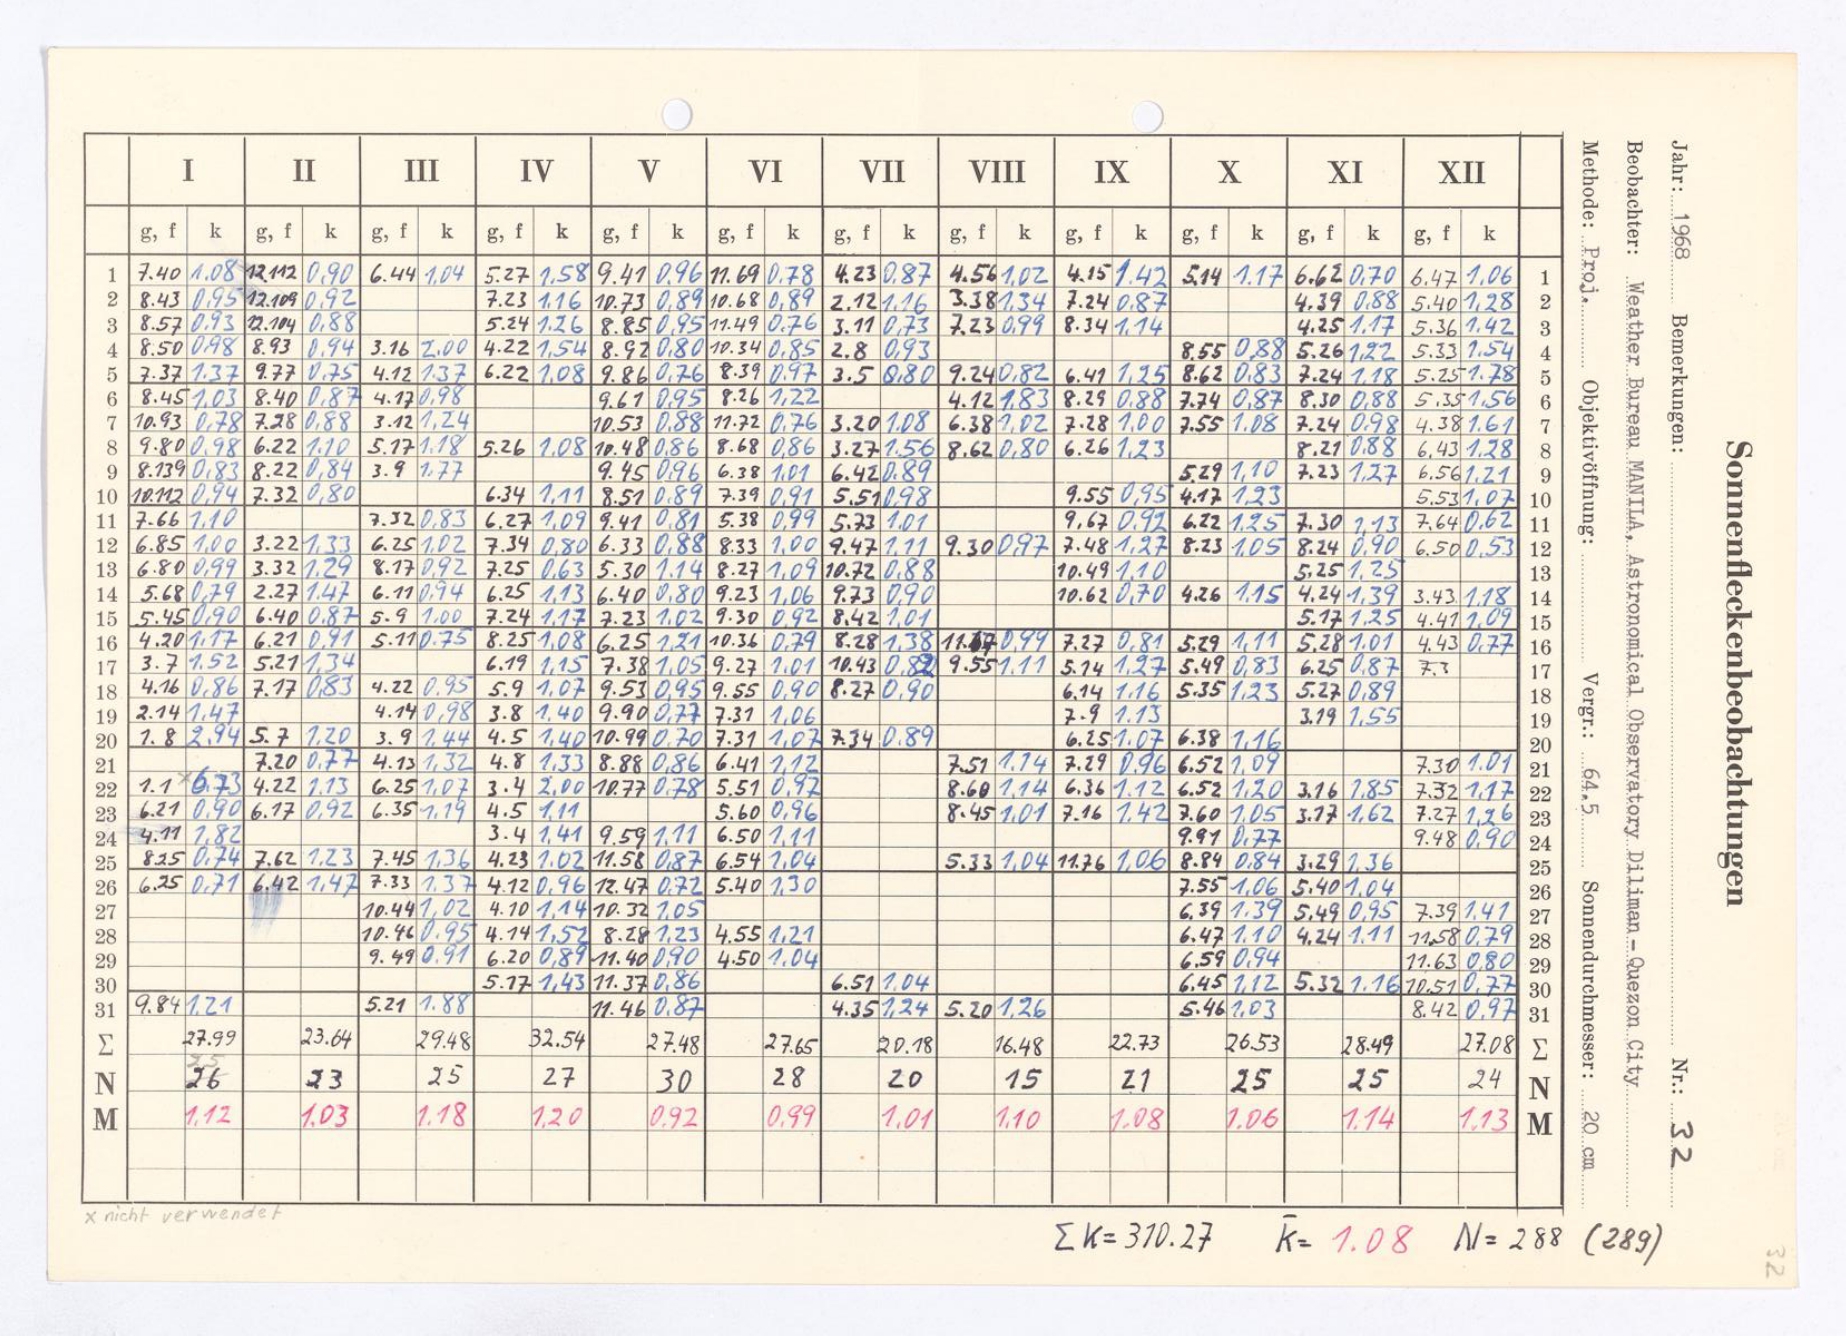 I II III IV V VI VII VIII IX X XI XII
g, f k g, f k g, f k g, f k g, f k g, f k g, f k g, f k g, f k g, f k g, f k g, f k
1 7.40 1.08 12.112 0,90 6.44 1,04 5.27 1,58 9.41 0,96 11.69 0,78 4.23 0,87 4.56 1,02 4.15 1.42 5.14 1.17 6.62 0,70 6.47 1.06 1
2 8.43 0,95 12.109 0,92 7.23 1.16 10.73 0,89 10.68 0,89 2.12 1.16 3.38 1,34 7.24 0,87 4.39 0,88 5.40 1,28 2
3 8.57 0,93 12.104 0,88 5.24 1.26 8.85 0,95 11.49 0,76 3.11 0,73 7.23 0,99 8.34 1,14 4.25 1.17 5.36 1.42 3
4 8.50 0,98 8.93 0,94 3.16 2.00 4.22 1,54 8.92 0,80 10.34 0,85 2.8 0,93 8.55 0,88 5.26 1,22 5.33 1.54 4
5 7.37 1.37 9.77 0,75 4.12 1.37 6.22 1,08 9.86 0,76 8.39 0,97 3.5 0,80 9.24 0,82 6.41 1,25 8.62 0,83 7.24 1,18 5.25 1.78 5
6 8.45 1,03 8.40 0,87 4.17 0,98 9.61 0,95 8.26 1,22 4.12 1,83 8.29 0,88 7.74 0,87 8.30 0,88 5.35 1,56 6
7 10.93 0,78 7.28 0,88 3.12 1,24 10.53 0,88 11.72 0,76 3.20 1.08 6.38 1,02 7.28 1,00 7.55 1.08 7.24 0,98 4.38 1.61 7
8 9.80 0,98 6.22 1,10 5.17 1.18 5.26 1,08 10.48 0,86 8.68 0,86 3.27 1.56 8.62 0,80 6.26 1,23 8.21 0,88 6,43 1,28 8
9 8.139 0,83 8.22 0,84 3.9 1,77 9.45 0,96 6.38 1,01 6.42 0,89 5.29 1,10 7.23 1,27 6.56 1.21 9
10 10.112 0,94 7.32 0,80 6.34 1,11 8.51 0,89 7.39 0,91 5.51 0,98 9.55 0,95 4.17 1,23 5.53 1,07 10
11 7.66 1,10 7.32 0,83 6.27 1,09 9.41 0,81 5.38 0,99 5.73 1,01 9,67 0,92 6.22 1.25 7.30 1,13 7.64 0,62 11
12 6.85 1,00 3.22 1,33 6.25 1,02 7.34 0,80 6.33 0,88 8.33 1,00 9.47 1.11 9.30 0,97 7.48 1,27 8.23 1,05 8.24 0,90 6.50 0,53 12
13 6.80 0,99 3.32 1,29 8.17 0,92 7.25 0,63 5.30 1.14 8.27 1,09 10.72 0,88 10.49 1,10 5,25 1,25 13
14 5.68 0,79 2.27 1.47 6.11 0,94 6.25 1,13 6.40 0,80 9.23 1,06 9.73 0,90 10.62 0,70 4.26 1,15 4.24 1,39 3.43 1.18 14
15 5.45 0,90 6.40 0,87 5.9 1.00 7.24 1,17 7.23 1,02 9.30 0,92 8,42 1,01 5.17 1.25 4.41 1,09 15
16 4.20 1.17 6.21 0,91 5.11 0,75 8.25 1,08 6.25 1,21 10.36 0,79 8.28 1,38 11.67 0,99 7.27 0,81 5.29 1,11 5.28 1.01 4.43 0,77 16
17 3.7 1.52 5.21 1,34 6.19 1,15 7.38 1.05 9.27 1.01 10.43 0,82 9.55 1.11 5.14 1,27 5.49 0,83 6.25 0,87 7.3 17
18 4.16 0,86 7.17 0,83 4.22 0,95 5.9 1,07 9.53 0,95 9.55 0,90 8.27 0,90 6.14 1,16 5.35 1,23 5.27 0,89 18
19 2.14 1,47 4.14 0,98 3.8 1,40 9.90 0,77 7.31 1,06 7.9 1.13 3.19 1,55 19
20 1.8 2,94 5.7 1,20 3.9 1,44 4.5 1,40 10.99 0,70 7.31 1,07 7.34 0.89 6.25 1.07 6.38 1,16 20
21 7.20 0,77 4.13 1,32 4.8 1,33 8.88 0,86 6.41 1,12 7.51 1.14 7.29 0,96 6.52 1,09 7.30 1.01 21
22 1.1 x 6,73 4.22 1,13 6.25 1,07 3.4 2,00 10.77 0,78 5.51 0,97 8.60 1,14 6.36 1,12 6.52 1,20 3.16 1,85 7.32 1,17 22
23 6.21 0,90 6.17 0,92 6.35 1,19 4.5 1,11 5.60 0,96 8.45 1.01 7.16 1,42 7.60 1.05 3.17 1,62 7.27 1,26 23
24 4.11 1,82 3.4 1,41 9.59 1.11 6.50 1,11 9.91 0,77 9.48 0,90 24
25 8.25 0,74 7.62 1.23 7.45 1,36 4.23 1.02 11.58 0,87 6.54 1,04 5.33 1,04 11.76 1,06 8.84 0,84 3.29 1,36 25
26 6.25 0,71 6.42 1,47 7.33 1,37 4.12 0,96 12.47 0,72 5.40 1,30 7.55 1,06 5.40 1.04 26
27 10.44 1,02 4.10 1,14 10.32 1.05 6.39 1.39 5.49 0,95 7.39 1,41 27
28 10.46 0,95 4.14 1,52 8.28 1,23 4.55 1,21 6.47 1.10 4.24 1.11 11.58 0,79 28
29 9.49 0,91 6.20 0,89 11.40 0,90 4.50 1.04 6.59 0,94 11.63 0,80 29
30 5.17 1,43 11.37 0,86 6.51 1,04 6.45 1,12 5.32 1.16 10.51 0,77 30
31 9.84 1.21 5.21 1.88 11.46 0,87 4.35 1,24 5.20 1,26 5.46 1.03 8.42 0,97 31
Σ 27.99 23.64 29.48 32.54 27.48 27.65 20.18 16.48 22.73 26.53 28.49 27.08 Σ
25
N 26 23 25 27 30 28 20 15 21 25 25 24 N
M 1.12 1.03 1.18 1,20 0.92 0,99 1.01 1,10 1.08 1.06 1.14 1.13 M
x nicht verwendet
Σ K = 310.27 k̄ = 1.08 N = 288 (289)
Sonnenfleckenbeobachtungen
Jahr: 1968 Bemerkungen: Nr.: 32
Beobachter: Weather Bureau MANILA, Astronomical Observatory Diliman - Quezon City
Methode: Proj. Objektivöffnung: Vergr.: 64.5 Sonnendurchmesser: 20 cm
32